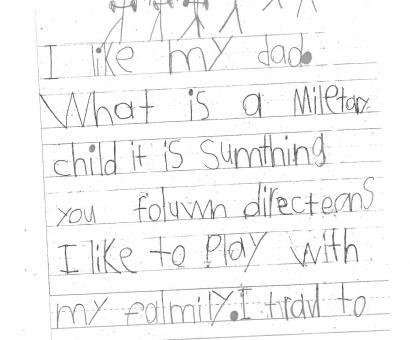 I like my dad.
What is a Miletary
child it is Sumthing
you foluwn directeons
I like to Play with
my falmily. I travl to